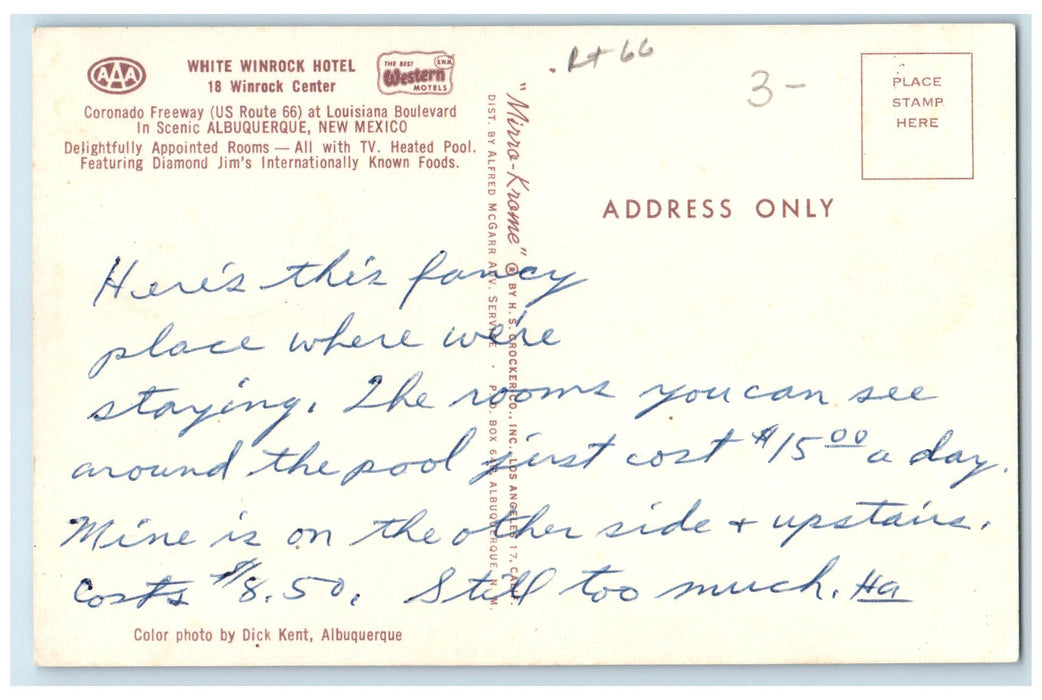 AAA
WHITE WINROCK HOTEL
18 Winrock Center
THE BEST
Western
MOTELS
Coronado Freeway (US Route 66) at Louisiana Boulevard
In Scenic ALBUQUERQUE, NEW MEXICO
Delightfully Appointed Rooms — All with TV. Heated Pool.
Featuring Diamond Jim's Internationally Known Foods.
. Rt 66
3-
PLACE
STAMP
HERE
ADDRESS ONLY
"Mirro-Krome" ® BY H. S. CROCKER CO., INC., LOS ANGELES 17, CALIF.
DIST. BY ALFRED MCGARR ADV. SERVICE · P. O. BOX ALBUQUERQUE, N. M.
Here's this fancy
place where we're
staying. The rooms you can see
around the pool just cost $1500 a day.
Mine is on the other side + upstairs.
Costs $8.50. Still too much. Ha
Color photo by Dick Kent, Albuquerque